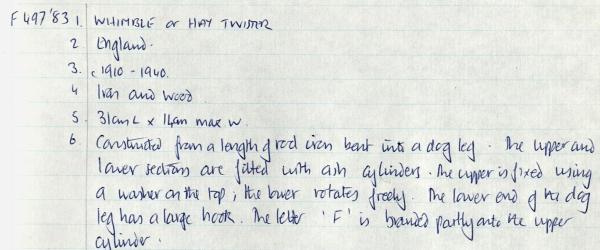 F497'83 1. WHIMBLE or HAY TWISTER
2 England.
3. c.1910 - 1940.
4 Iron and wood.
5. 31cm L x 14cm max w.
6. Constructed from a length of rod iron bent into a dog leg. The upper and
lower sections are fitted with ash cylinders. The upper is fixed using
a washer on the top; the lower rotates freely. The lower end of the dog
leg has a large hook. The letter 'F' is branded partly onto the upper
cylinder.